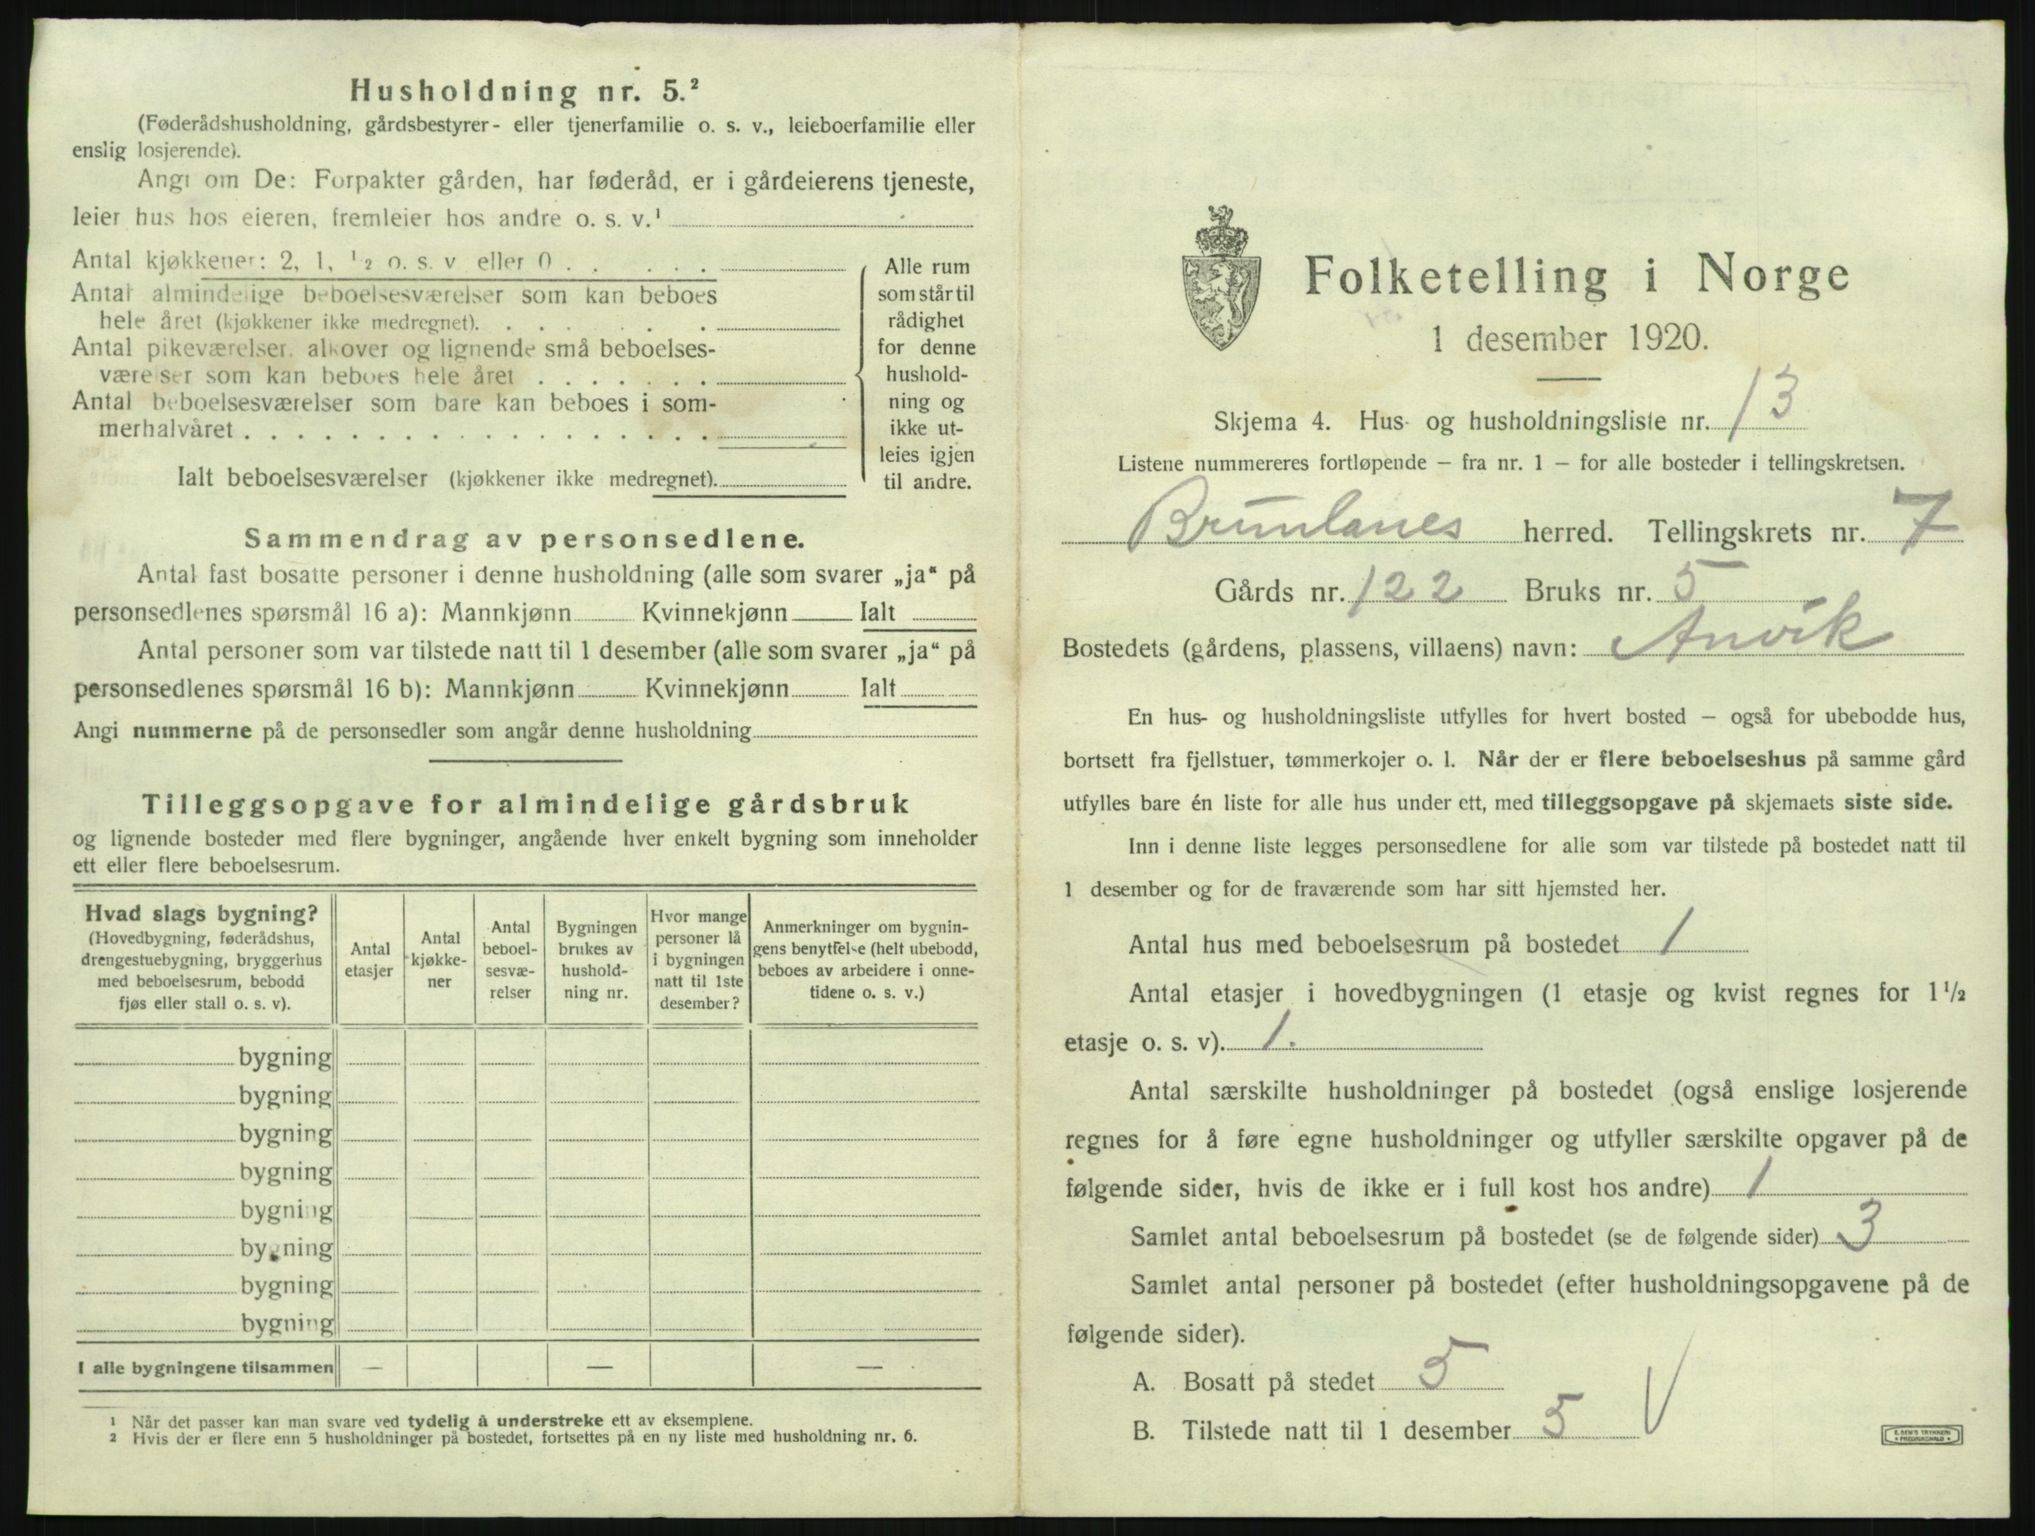 Husholdning nr. 5.²
(Føderådshusholdning, gårdsbestyrer- eller tjenerfamilie o. s. v., leieboerfamilie eller
enslig losjerende).
Angi om De: Forpakter gården, har føderåd, er i gårdeierens tjeneste,
leier hus hos eieren, fremleier hos andre o. s. v.¹
Antal kjøkkener: 2, 1, ½ o. s. v eller 0
Antal almindelige beboelsesværelser som kan beboes
hele året (kjøkkener ikke medregnet).
Antal pikeværelser, alkover og lignende små beboelses-
værelser som kan beboes hele året
Antal beboelsesværelser som bare kan beboes i som-
merhalvåret
Ialt beboelsesværelser (kjøkkener ikke medregnet).
Alle rum
som står til
rådighet
for denne
hushold-
ning og
ikke ut-
leies igjen
til andre.
Sammendrag av personsedlene.
Antal fast bosatte personer i denne husholdning (alle som svarer „ja“ på
personsedlenes spørsmål 16 a): Mannkjønn Kvinnekjønn Ialt
Antal personer som var tilstede natt til 1 desember (alle som svarer „ja“ på
personsedlenes spørsmål 16 b): Mannkjønn Kvinnekjønn Ialt
Angi nummerne på de personsedler som angår denne husholdning
Tilleggsopgave for almindelige gårdsbruk
og lignende bosteder med flere bygninger, angående hver enkelt bygning som inneholder
ett eller flere beboelsesrum.
Hvad slags bygning?
(Hovedbygning, føderådshus,
drengestuebygning, bryggerhus
med beboelsesrum, bebodd
fjøs eller stall o. s. v).
Antal
etasjer
Antal
kjøkke-
ner
Antal
beboel-
sesvæ-
relser
Bygningen
brukes av
hushold-
ning nr.
Hvor mange
personer lå
i bygningen
natt til 1ste
desember?
Anmerkninger om bygnin-
gens benyttelse (helt ubebodd,
beboes av arbeidere i onne-
tidene o. s. v.)
bygning
bygning
bygning
bygning
bygning
bygning
bygning
bygning
I alle bygningene tilsammen — — —
¹ Når det passer kan man svare ved tydelig å understreke ett av eksemplene.
² Hvis der er flere enn 5 husholdninger på bostedet, fortsettes på en ny liste med husholdning nr. 6.
Folketelling i Norge
1 desember 1920.
Skjema 4. Hus- og husholdningsliste nr. 13
Listene nummereres fortløpende – fra nr. 1 – for alle bosteder i tellingskretsen.
Brunlanes herred. Tellingskrets nr. 7
Gårds nr. 122 Bruks nr. 5
Bostedets (gårdens, plassens, villaens) navn: Anvik
En hus- og husholdningsliste utfylles for hvert bosted – også for ubebodde hus,
bortsett fra fjellstuer, tømmerkojer o. l. Når der er flere beboelseshus på samme gård
utfylles bare én liste for alle hus under ett, med tilleggsopgave på skjemaets siste side.
Inn i denne liste legges personsedlene for alle som var tilstede på bostedet natt til
1 desember og for de fraværende som har sitt hjemsted her.
Antal hus med beboelsesrum på bostedet 1
Antal etasjer i hovedbygningen (1 etasje og kvist regnes for 1½
etasje o. s. v). 1.
Antal særskilte husholdninger på bostedet (også enslige losjerende
regnes for å føre egne husholdninger og utfyller særskilte opgaver på de
følgende sider, hvis de ikke er i full kost hos andre) 1
Samlet antal beboelsesrum på bostedet (se de følgende sider) 3
Samlet antal personer på bostedet (efter husholdningsopgavene på de
følgende sider).
A. Bosatt på stedet 5
B. Tilstede natt til 1 desember 5 V